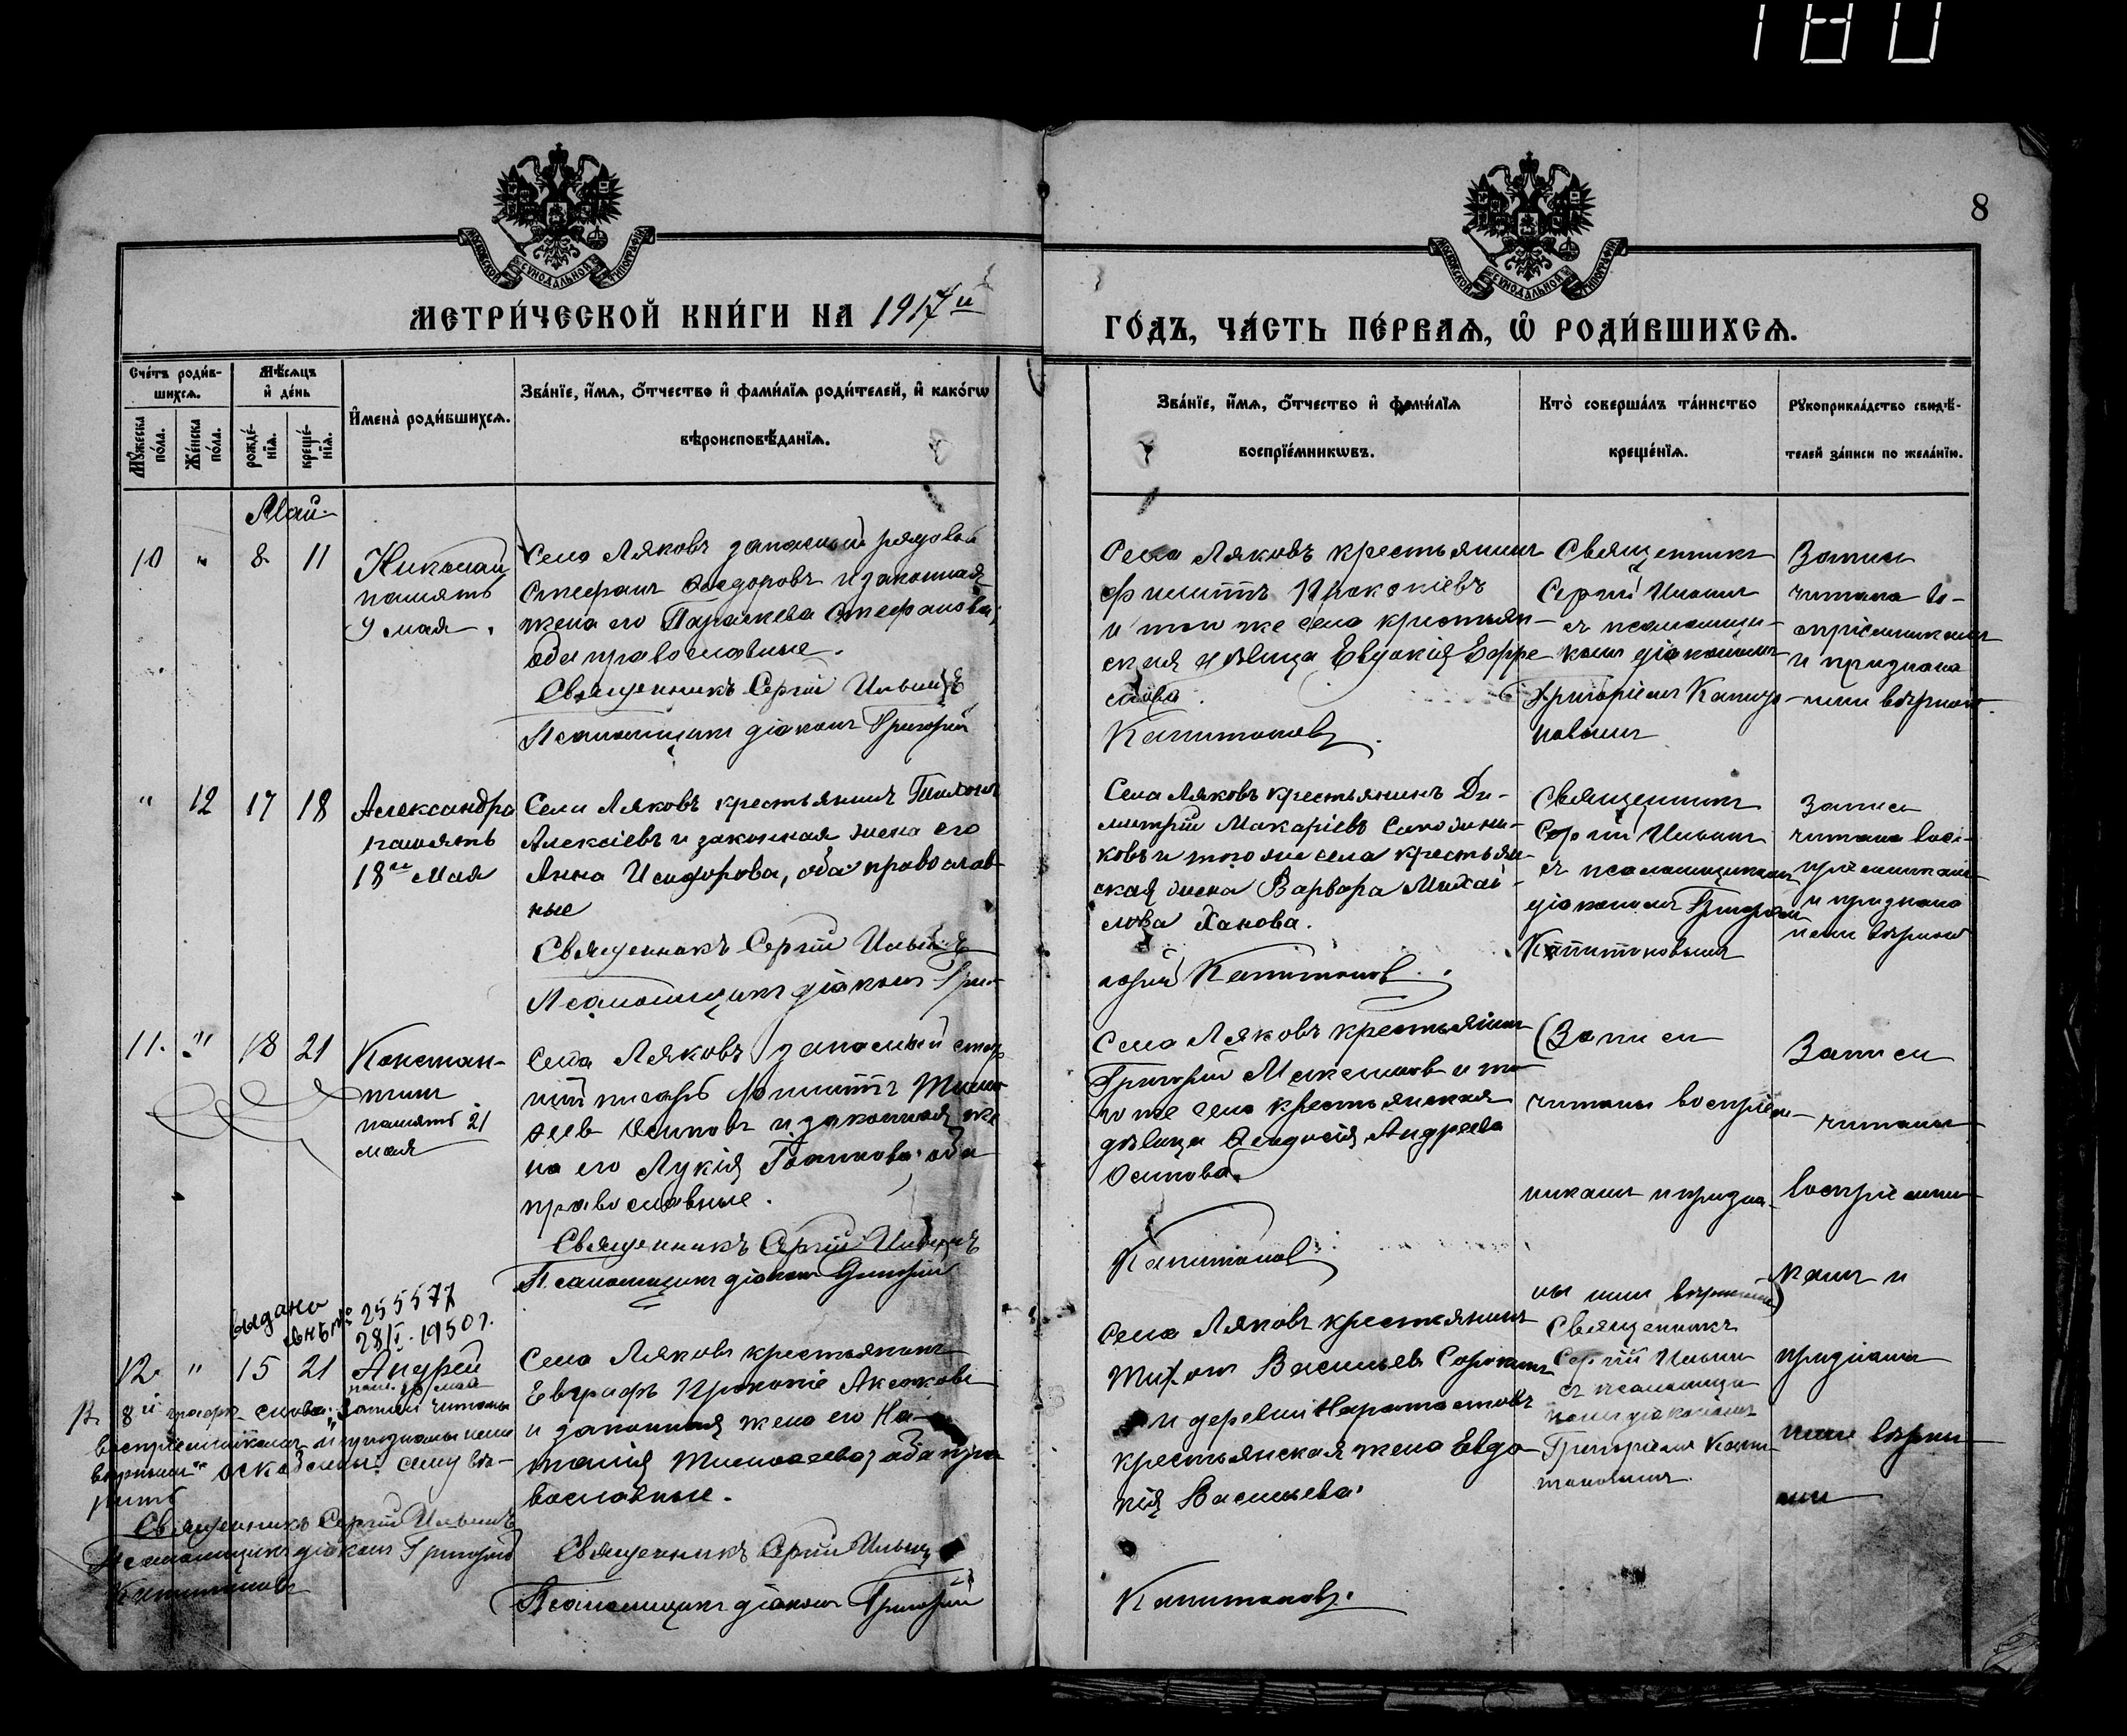 180
8
МОСКОВСКОЙ СѴНОДАЛЬНОЙ ТИПОГРАФІИ
МОСКОВСКОЙ СѴНОДАЛЬНОЙ ТИПОГРАФІИ
МЕТРИ́ЧЕСКОЙ КНИ́ГИ НА 1917й
ГО́ДЪ, ЧА́СТЬ ПЕ́РВАѦ, Ѡ҆ РОДИ́ВШИХСѦ.
Сче́тъ роди́в-
шихсѧ.
Мꙋ́жеска по́ла.
Же́нска по́ла.
Мѣ́сѧцъ
и҆ де́нь
рожде́-
нїѧ.
креще́-
нїѧ.
И҆мена̀ роди́вшихсѧ.
Зва́нїе, и҆́мѧ, ѻ҆́тчество и҆ фами́лїѧ роди́телей, и҆ како́гѡ
вѣроисповѣ́данїѧ.
Зва́нїе, и҆́мѧ, ѻ҆́тчество и҆ фами́лїѧ
воспрїе́мникѡвъ.
Кто̀ соверша́лъ та́инство
креще́нїѧ.
Рꙋкоприкла́дство свидѣ́-
телей за́писи по жела́нїю.
Май
10 " 8 11
Николай
память
9 мая.
Села Ляковъ запасный рядовой
Стефанъ Ѳедоровъ и законная
жена его Параскева Стефанова,
оба православные.
Священникъ Сергій Ильинъ
Псаломщикъ діаконъ Григорій
Села Ляковъ крестьянинъ
Филиппъ Прокопіевъ
и того же села крестьян-
ская дѣвица Евдокія Ефре
мова.
Капитоновъ.
Священникъ
Сергій Ильинъ
съ псаломщи-
комъ діакономъ
Григоріемъ Капито-
новымъ
Запись
читана во-
спріемникамъ
и признана
ими вѣрною.
" 12 17 18
Александра
память
18го мая
Села Ляковъ крестьянинъ Тихонъ
Алексіевъ и законная жена его
Анна Исидорова, оба православ-
ные
Священникъ Сергій Ильинъ
Псаломщикъ діаконъ Гри-
Села Ляковъ крестьянинъ Ди-
митрій Макаріевъ
ковъ и того же села крестьян-
ская жена Варвара Михай-
лова Ханова.
горій Капитоновъ.
Священникъ
Сергій Ильинъ
съ псаломщикомъ
діакономъ Григоріемъ
Капитоновымъ
Запись
читана вос-
пріемникамъ
и признана
ими вѣрною
11. " 18 21
Констан-
тинъ
память 21
мая
Села Ляковъ запасный стар
шій писарь Филиппъ Тимо
ѳеевъ Осиповъ и законная же
на его Лукія Іоаннова, оба
православные.
Священникъ Сергій Ильинъ
Псаломщикъ діаконъ Григорій
Села Ляковъ крестьянинъ
Григорій Максимовъ и то
го же села крестьянская
дѣвица Ѳеодосія Андреева
Осипова.
Капитоновъ
(Записи
читаны воспріем-
никамъ и призна-
ны ими вѣрными)
Записи
читаны
воспріемни
камъ и
признаны
ими вѣрны
ми
выдано
№ 255577
28/I-1950г.
12. " 15 21
Андрей
Села Ляковъ крестьянинъ
Евграфъ Прокопіе Аксаковъ
и законная жена его На-
талія Тимоѳеева, оба пра
вославные.
Священникъ Сергій Ильинъ
Псаломщикъ діаконъ Григорій
Села Ляковъ крестьянинъ
Тихонъ Васильевъ Сорокинъ
и деревни
крестьянская жена Евдо
кія Васильева.
Капитоновъ.
Священникъ
Сергій Ильинъ
съ псаломщи
комъ діакономъ
Григоріемъ Капи-
тоновымъ.
8й графѣ слова: "записи читаны
воспріемникамъ и признаны ими
вѣрными" сему вѣ-
рить
Священникъ Сергій Ильинъ
Псаломщикъ діаконъ Григорій
Капитоновъ